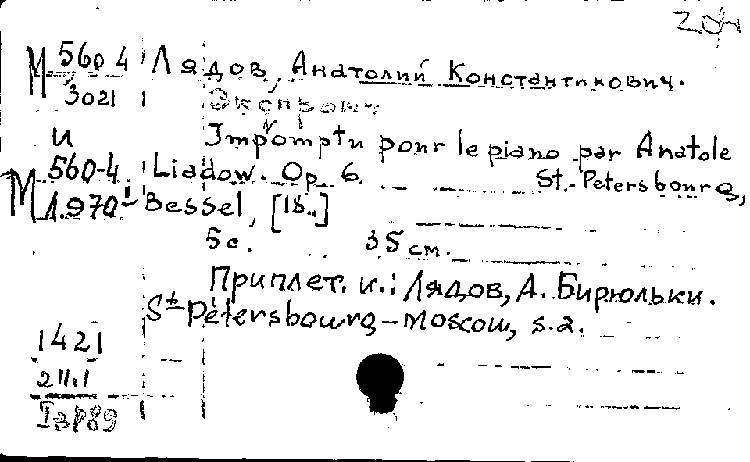 204
М 560-4 Лядов, Анатолий Константинович.
3021 Экспромт
и Impromptu pour le piano par Anatole
М 560-4 Liadow. Op 6. St.-Petersbourg,
Л.970-I Bessel, [18..]
5 c. 35 см.
Приплет. к.: Лядов, А. Бирюльки.
St Pétersbourg-Moscou, s.a.
1421
I зр89